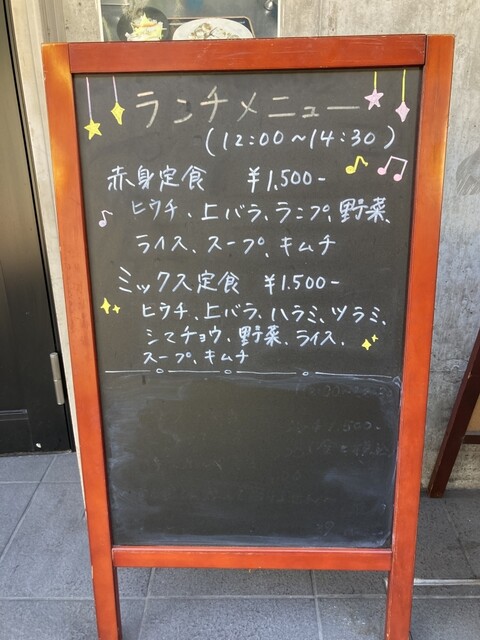 ランチメニュー
(12:00~14:30)
赤身定食 ¥1,500-
ヒウチ、上バラ、ランプ、野菜、
ライス、スープ、キムチ
ミックス定食 ¥1.500-
ヒウチ、上バラ、ハラミ、ツラミ、
シマチョウ、野菜、ライス、
スープ、キムチ